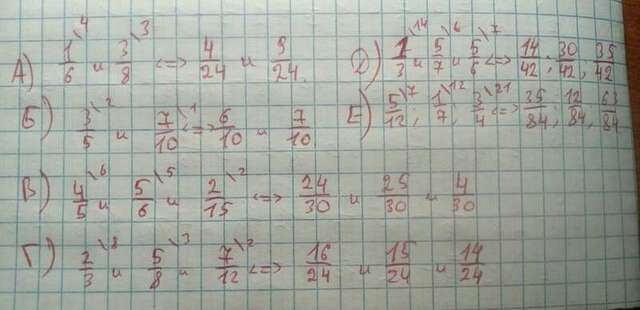 А) 1/6 \4 и 3/8 \3 <=> 4/24 и 9/24.
Б) 3/5 \2 и 7/10 \1 <=> 6/10 и 7/10
В) 4/5 \6 и 5/6 \5 и 2/15 \2 <=> 24/30 и 25/30 и 4/30
Г) 2/3 \8 и 5/8 \3 и 7/12 \2 <=> 16/24 и 15/24 и 14/24
Д) 1/3 \14 и 5/7 \6 и 5/6 \7 <=> 14/42; 30/42; 35/42
Е) 5/12 \7, 1/7 \12, 3/4 \21 <=> 35/84; 12/84; 63/84